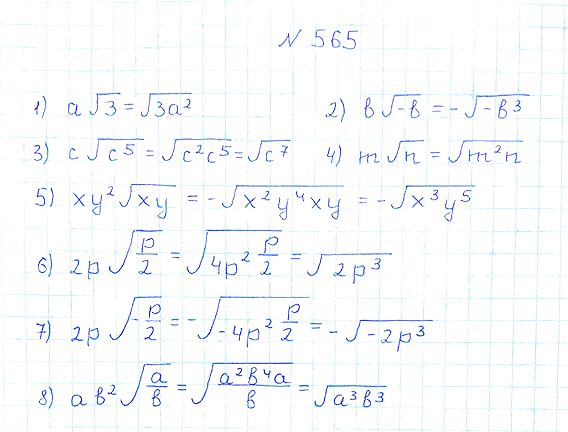 N 565
1) a√3 = √3a² 2) b√-b = -√-b³
3) c√c⁵ = √c²c⁵ = √c⁷ 4) m√n = √m²n
5) xy²√xy = -√x²y⁴xy = -√x³y⁵
6) 2p√(p/2) = √(4p² p/2) = √2p³
7) 2p√(-p/2) = -√(-4p² p/2) = -√-2p³
8) ab²√(a/b) = √(a²b⁴a/b) = √a³b³